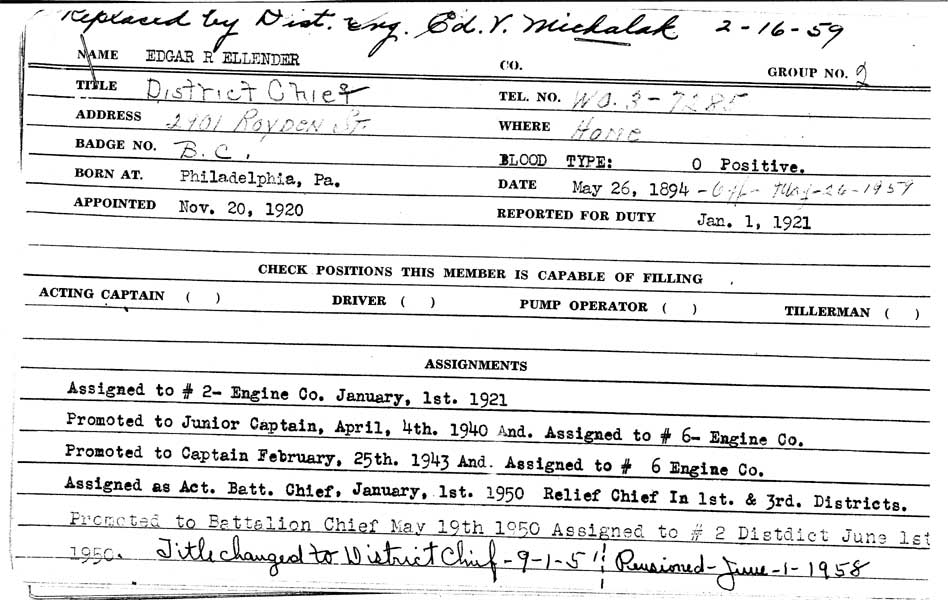 Replaced by Dist. Eng. Ed. V. Michalak 2-16-59
NAME EDGAR R ELLENDER CO. GROUP NO. 2
TITLE District Chief TEL. NO. WO. 3-7285
ADDRESS 2901 Royden St. WHERE Home
BADGE NO. B.C. BLOOD TYPE: O Positive.
BORN AT. Philadelphia, Pa. DATE May 26, 1894 - May-26-1959
APPOINTED Nov. 20, 1920 REPORTED FOR DUTY Jan. 1, 1921
CHECK POSITIONS THIS MEMBER IS CAPABLE OF FILLING
ACTING CAPTAIN ( ) DRIVER ( ) PUMP OPERATOR ( ) TILLERMAN ( )
ASSIGNMENTS
Assigned to # 2- Engine Co. January, 1st. 1921
Promoted to Junior Captain, April, 4th. 1940 And. Assigned to # 6- Engine Co.
Promoted to Captain February, 25th. 1943 And. Assigned to # 6 Engine Co.
Assigned as Act. Batt. Chief, January, 1st. 1950 Relief Chief In 1st. & 3rd. Districts.
Promoted to Battalion Chief May 19th 1950 Assigned to # 2 Distdict June 1st
1950. Title changed to District Chief-9-1-51 Pensioned-June-1-1958